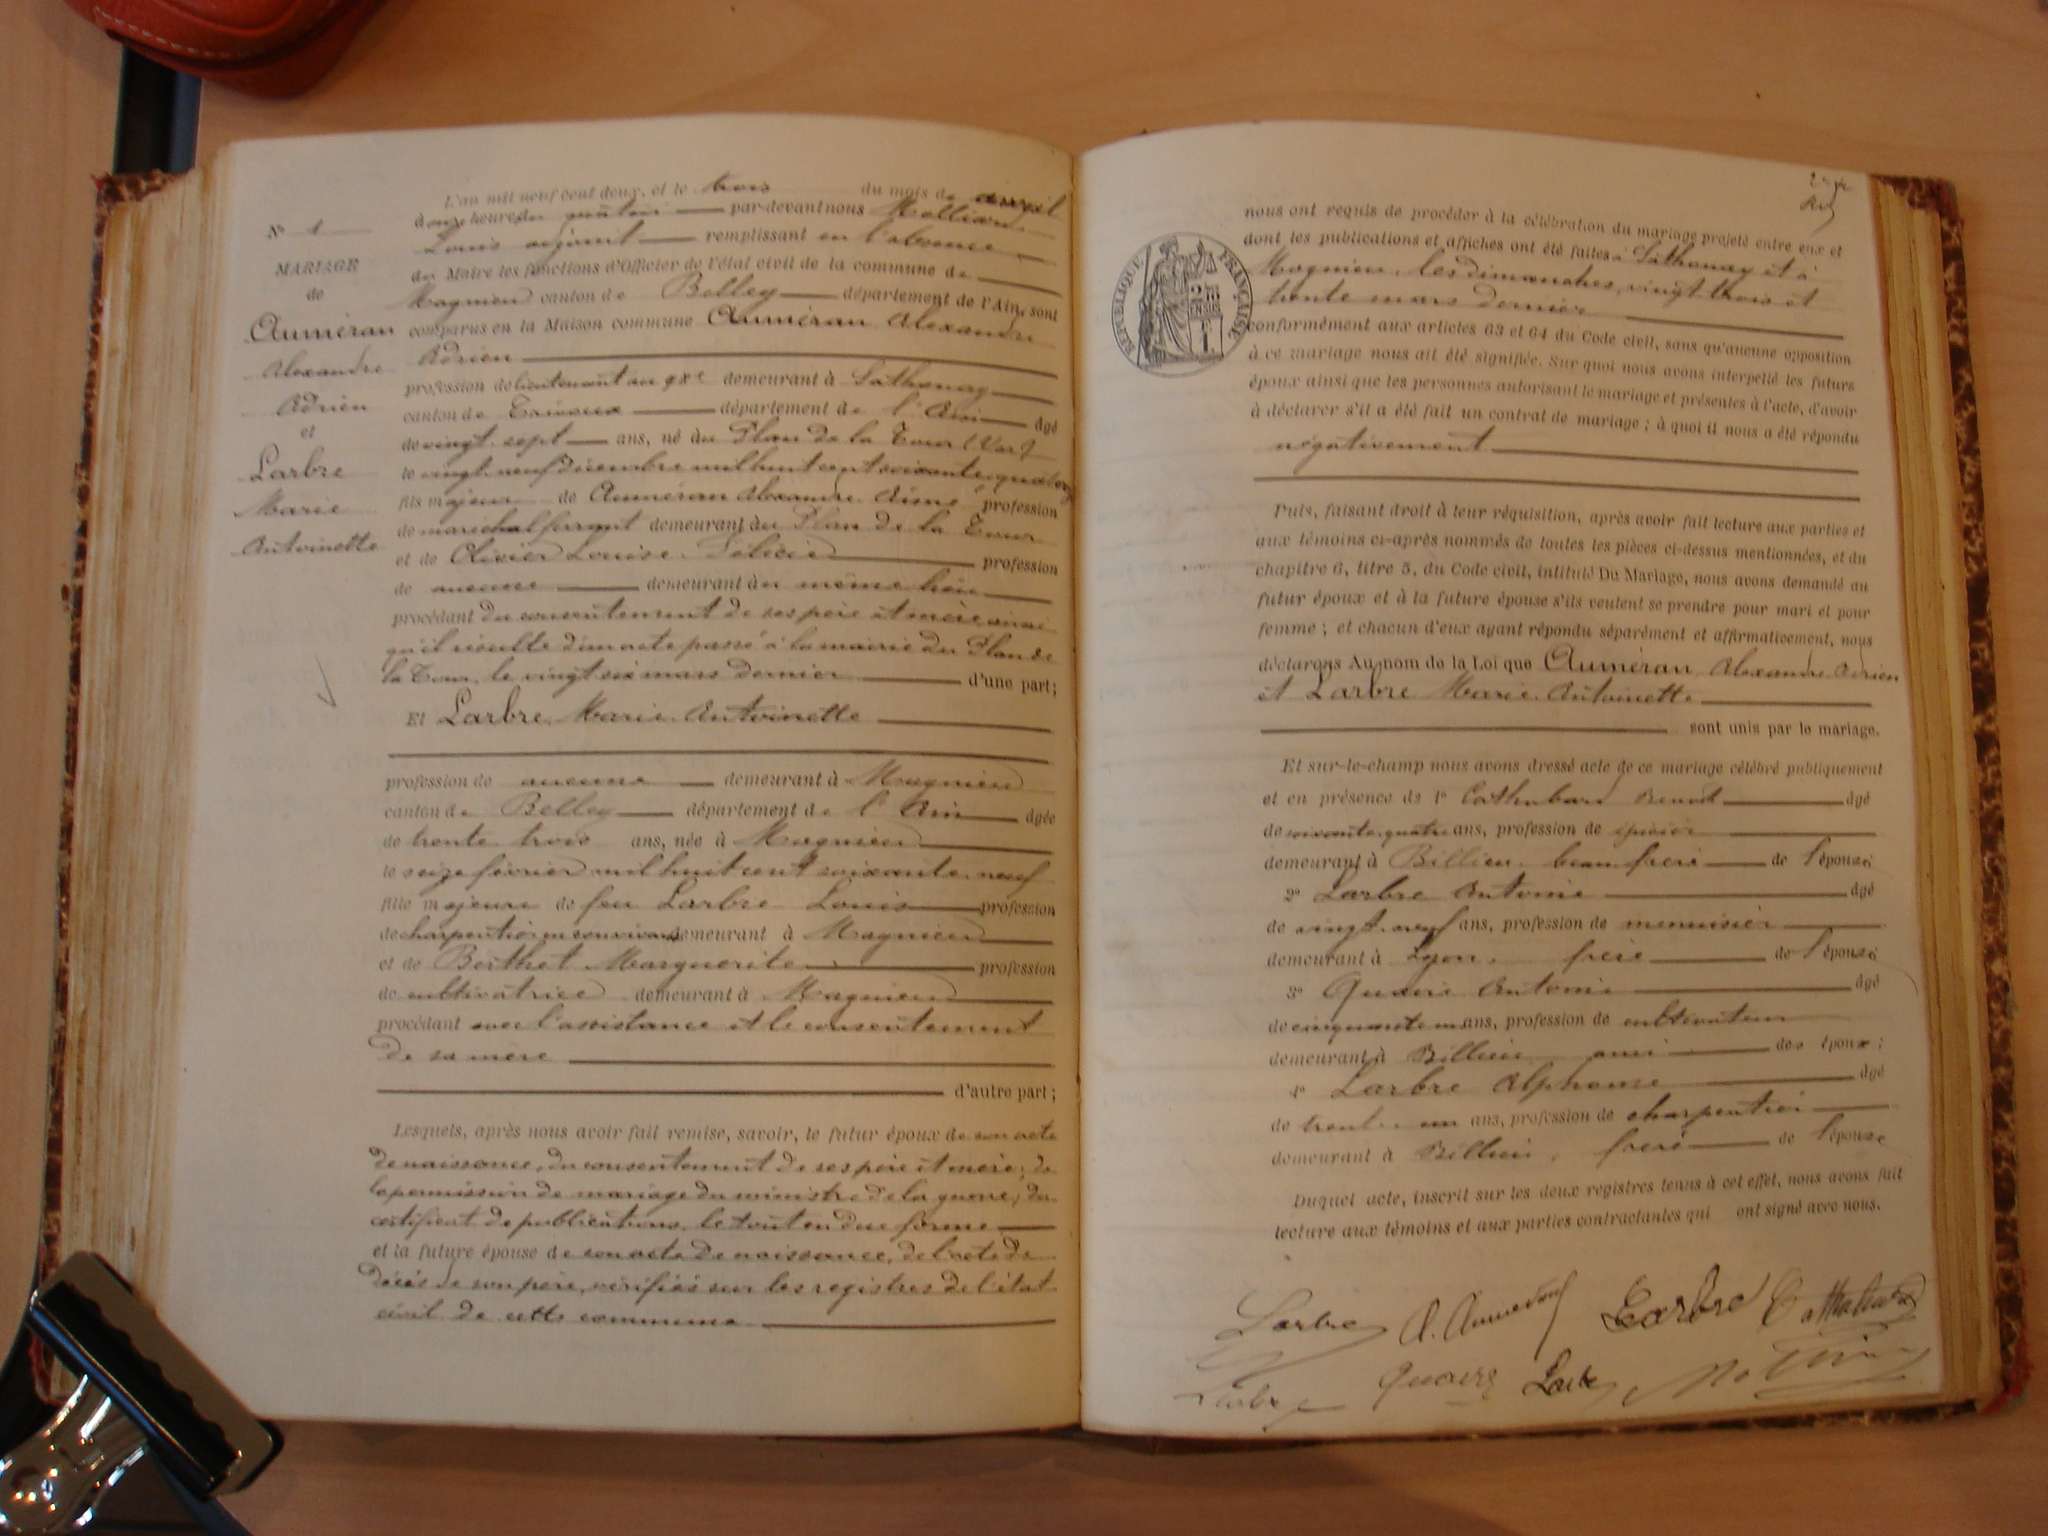 N° 1
MARIAGE
de
Auméran
Alexandre
Adrien
et
Larbre
Marie
Antoinette
L'an mil neuf cent deux, et le trois du mois de avril
heure du matin par-devant nous
Louis adjoint remplissant en l'absence
du Maire les fonctions d'Officier de l'état civil de la commune de
Magnieu canton de Belley département de l'Ain, sont
comparus en la Maison commune Auméran Alexandre
Adrien
profession de lieutenant au demeurant à Sathonay
canton de Trévoux département de l'Ain âgé
de vingt sept ans, né au Plan de la Tour (Var)
le vingt neuf décembre mil huit cent soixante quatorze
fils majeur de Auméran Alexandre Aimé profession
de marechal ferrant demeurant au Plan de la Tour
et de Olivier Louise Félicie profession
de aucune demeurant au même lieu
procédant du consentement de ses père et mère, ainsi
qu'il résulte d'un acte passé à la mairie du Plan de
la Tour, le vingt six mars dernier d'une part;
Et Larbre Marie Antoinette
profession de aucune demeurant à Magnieu
canton de Belley département de l'Ain âgée
de trente trois ans, née à Magnieu
le seize février mil huit cent soixante neuf
fille majeure de feu Larbre Louis profession
de charpentier en son vivant demeurant à Magnieu
et de Berthet Marguerite profession
de cultivatrice demeurant à Magnieu
procédant avec l'assistance et le consentement
de sa mère
d'autre part;
Lesquels, après nous avoir fait remise, savoir, le futur époux de son acte
de naissance, du consentement de ses père et mère; de
la permission de mariage du ministre de la guerre; du
certificat de publications, le tout en due forme
et la future épouse de son acte de naissance, de l'acte de
décès de son père, vérifiés sur les registres de l'état
civil de cette commune
nous ont requis de procéder à la célébration du mariage projeté entre eux et
dont les publications et affiches ont été faites à Sathonay et à
Magnieu, les dimanches, vingt trois et
trente mars dernier
RÉPUBLIQUE FRANÇAISE
conformément aux articles 63 et 64 du Code civil, sans qu'aucune opposition
à ce mariage nous ait été signifiée. Sur quoi nous avons interpellé les futurs
époux ainsi que les personnes autorisant le mariage et présentes à l'acte, d'avoir
à déclarer s'il a été fait un contrat de mariage; à quoi il nous a été répondu
négativement
Puis, faisant droit à leur réquisition, après avoir fait lecture aux parties et
aux témoins ci-après nommés de toutes les pièces ci-dessus mentionnées, et du
chapitre 6, titre 5, du Code civil, intitulé Du Mariage, nous avons demandé au
futur époux et à la future épouse s'ils veulent se prendre pour mari et pour
femme; et chacun d'eux ayant répondu séparément et affirmativement, nous
déclarons Au nom de la Loi que Auméran Alexandre Adrien
et Larbre Marie Antoinette
sont unis par le mariage.
Et sur-le-champ nous avons dressé acte de ce mariage célébré publiquement
et en présence de 1° Benoit âgé
de soixante quatre ans, profession de épicier
demeurant à Billieu, beau frère de l'épouse
2° Larbre Antoine âgé
de vingt neuf ans, profession de menuisier
demeurant à Lyon, frère de l'épouse
3° Antoine âgé
de ans, profession de cultivateur
demeurant à Billieu ami des époux;
4° Larbre Alphonse âgé
de trente un ans, profession de charpentier
demeurant à Billieu, frère de l'épouse
Duquel acte, inscrit sur les deux registres tenus à cet effet, nous avons fait
lecture aux témoins et aux parties contractantes qui ont signé avec nous.
Larbre Larbre
Larbre